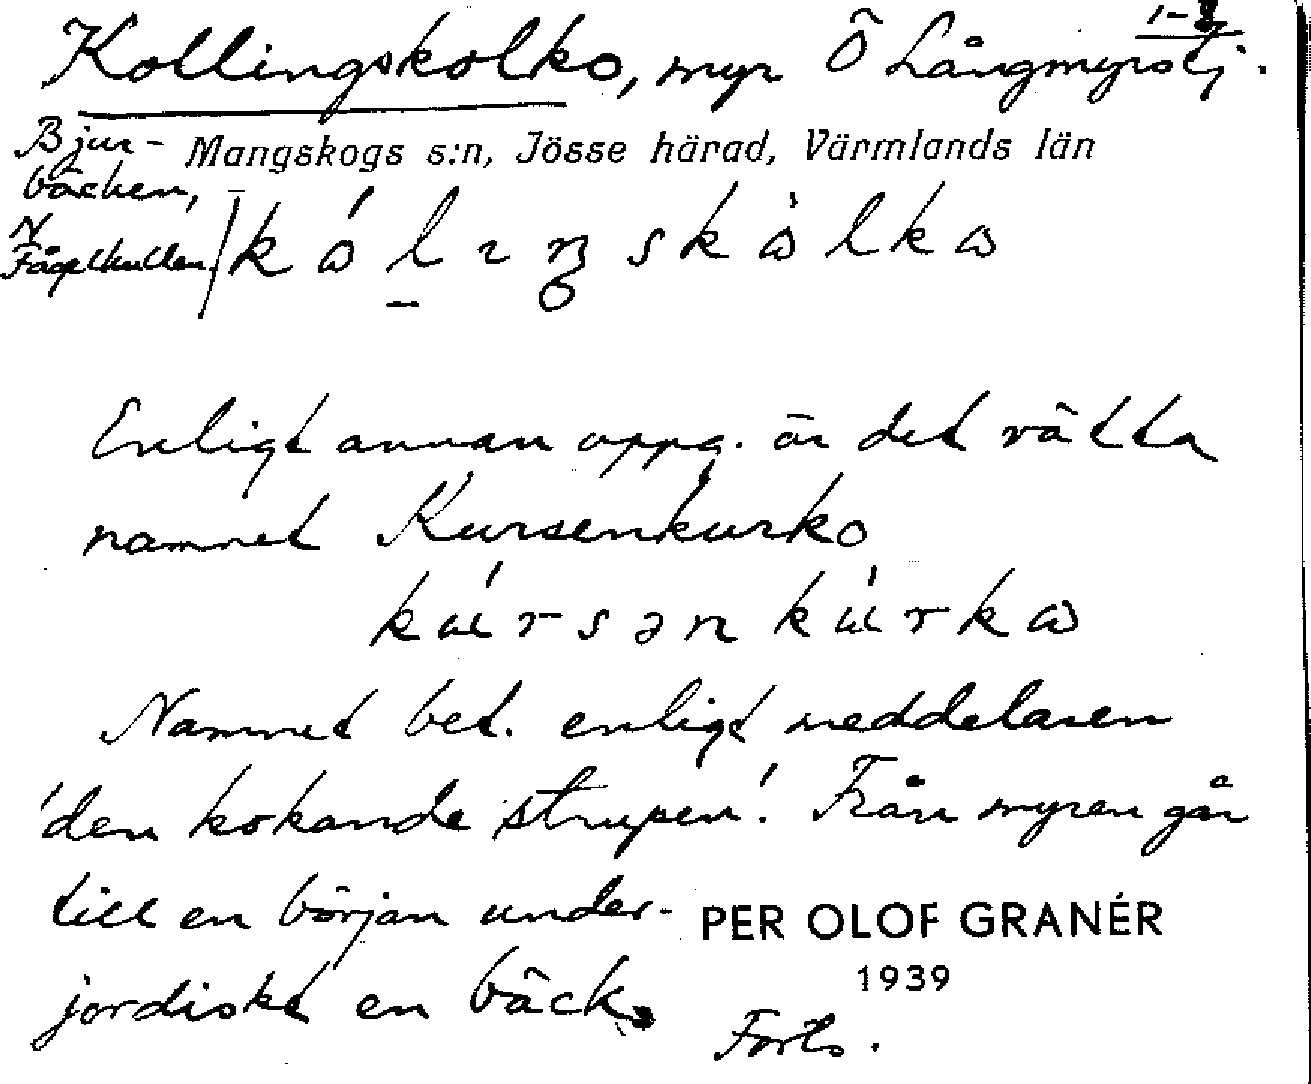 1-2
Kollingskolko, myr Ö Långmyrstj.
Bjur- Mangskogs s:n, Jösse härad, Värmlands län
bäcken,
N
Fågelkullen
Enligt annan uppg. är det rätta
namnet Kursenkurko
Namnet bet. enligt meddelaren
'den kokande strupen'. Från myren går
till en början under- PER OLOF GRANÉR
jordiskt en bäck. 1939
Forts.